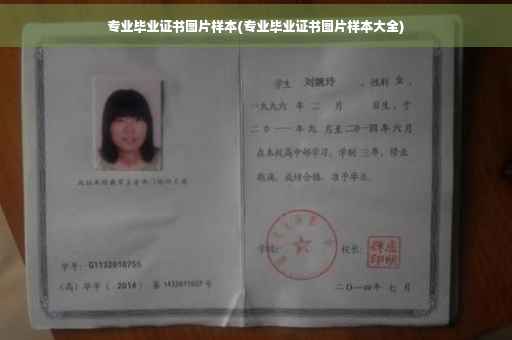 专业毕业证书图片样本(专业毕业证书图片样本大全)
学生 刘婉玲 ,性别 女 ,
一九九六 年 二 月 日生,于
二〇一一年九 月至二〇一四年六月
在本校高中部学习,学制 三年,修业
期满,成绩合格,准予毕业。
学校: 校长:
学号: G1132010755
(高)毕字( 2014 )第 1432011027 号
二〇一四年 七 月